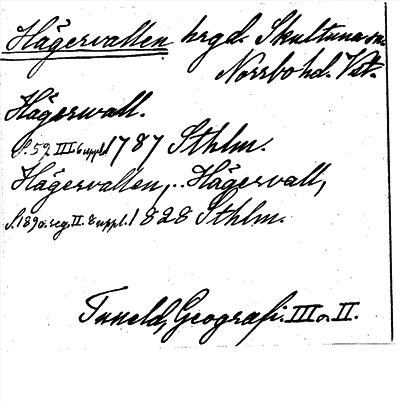 Hägervallen hrgd. Skultuna sn
Norrbo hd. Vst.
Hägerwall.
S. 52 III. 6 uppl. 1787 Sthlm.
Hägervallen, .. Hägervall,
S. 189 o. reg. II. 8 uppl. 1828 Sthlm.
Tuneld, Geografi. III o. II.